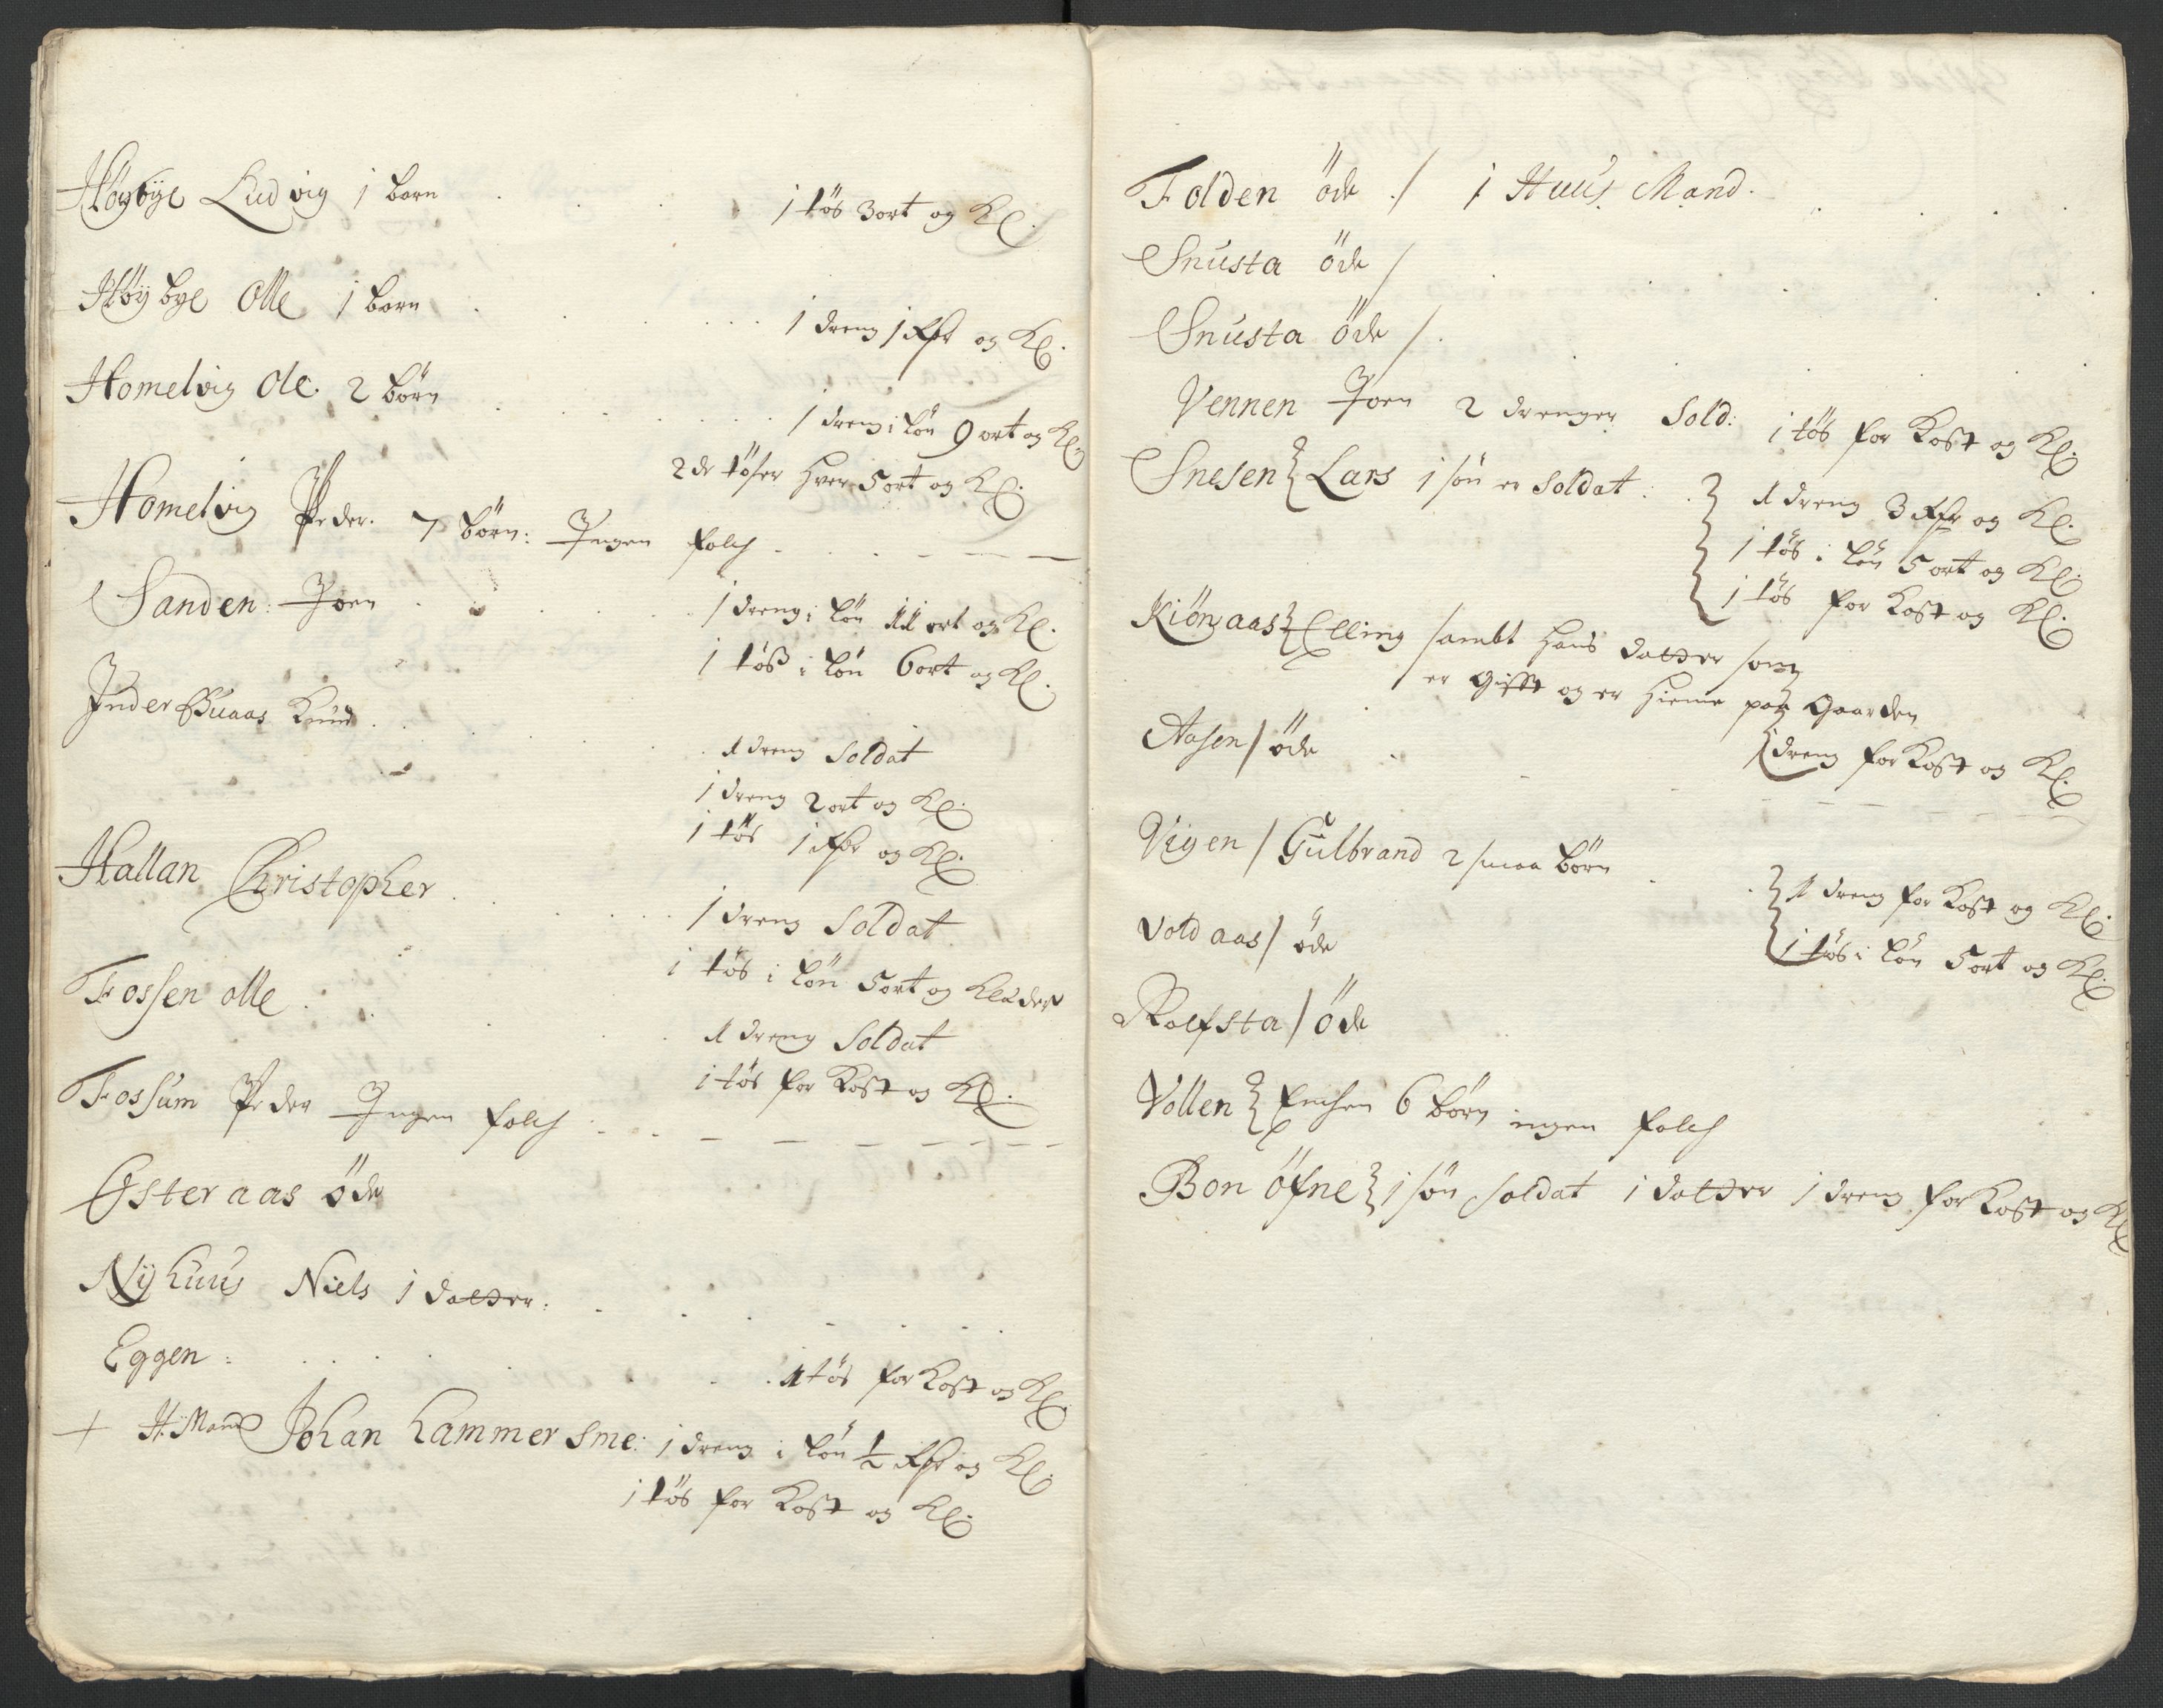 Høybye Ludvig 1 barn . . . 1 tøs 3 ort og Kl.
Høybye Olle 1 barn . . . 1 dreng 1 Rdr og Kl.
Homelvig Ole. 2 børn . . . 1 dreng i løn 9 ort og Kl.
2de tøser hver 5 ort og Kl.
Homelvig Peder. 7 børn: Ingen folch . . .
Sanden: Joen . . . 1 dreng i løn 11 ort og Kl.
1 tøs i løn 6 ort og Kl.
Inder Buaas Knud . . . 1 dreng Soldat
1 dreng 2 ort og Kl.
1 tøs 1 Rdr og Kl.
Hallan Christopher . . . 1 dreng Soldat
1 tøs i løn 5 ort og Klæder
Fossen olle . . . 1 dreng Soldat
1 tøs for Kost og Kl.
Fossum Peder Ingen folch . . .
Østeraas öde
Nÿhuus Niels 1 datter: . . .
Eggen: . . . 1 tøs for Kost og Kl.
+ H. Mand Johan hammer sme: 1 dreng i løn ½ Rdr og Kl.
1 tøs for Kost og Kl.
Folden öde / 1 Huus Mand.
Snusta öde /
Snusta öde /
Vennen Joen 2 drenger Sold: 1 tøs for Kost og Kl.
Snesen } Lars 1 søn er Soldat: . } 1 dreng 3 Rdr og Kl.
1 tøs i løn 5 ort og Kl.
1 tøs for Kost og Kl.
Kiønaas } Elling sambt hans datter som
er Gifft og er hieme paa Gaarden
{ dreng for Kost og Kl.
Aasen / öde
Vigen / Gulbrand 2 smaa børn . . } 1 dreng for Kost og Kl.
1 tøs i løn 5 ort og Kl.
Vold aas / öde
Rolfsta / öde
Vollen } 6 børn ingen folch
Bon öfne } 1 søn soldat 1 datter 1 dreng for Kost og Kl